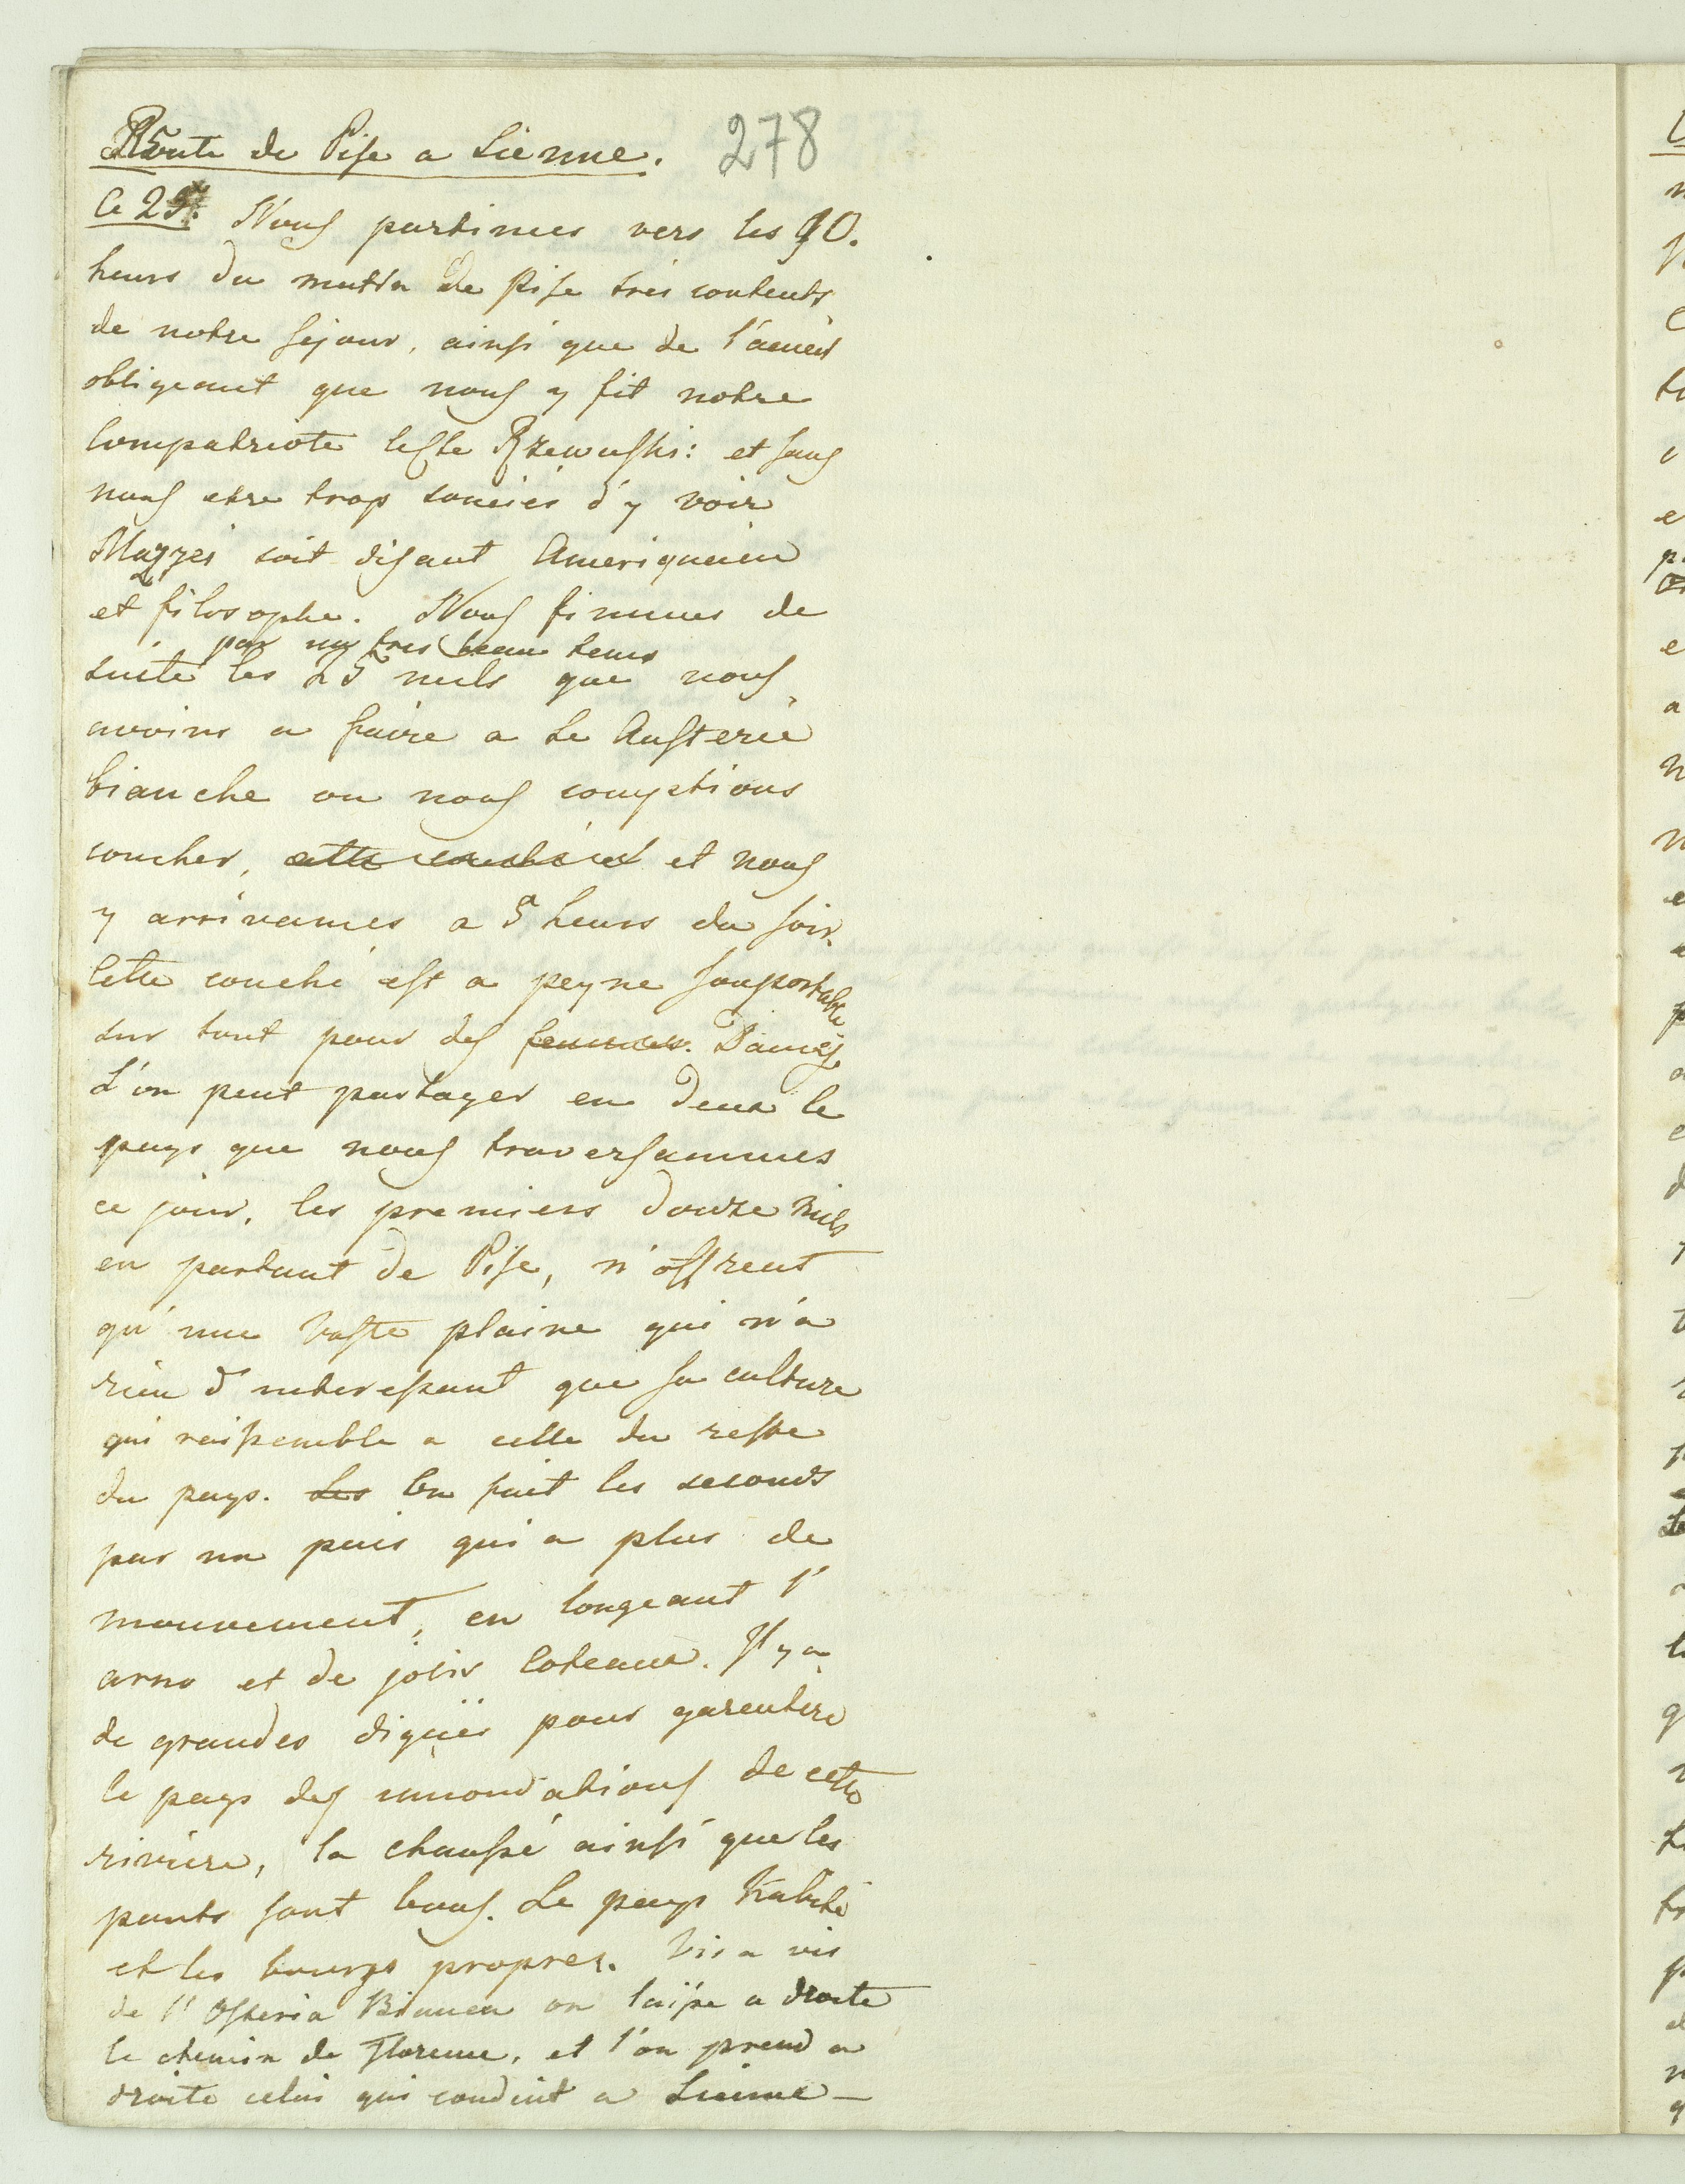 Route de Pise a Sienne. 278
Ce 25. Nous partimes vers les 10.
heurs du mattin de Pise tres contents
de notre sejour, ainsi que de l'acueil
obligeant que nous y fit notre
Compatriote le Cte Rzewuski: et sans
nous etre trop souciés d'y voir
Mazzei soit disant Ameriquaien
et filosophe. Nous fimmes de
par un tres beau tems
suite les 25 mils que nous
avoins a faire a Le Austerie
bianche ou nous comptions
coucher, et nous
y arrivames a 5 heurs du soir.
Cette couché est a peyne souportable
sur tout pour des femmes. Dames
L'on peut partager en deux le
pays que nous traversammes
ce jour, les premiers douze mils
en partant de Pise, n'offrent
qu'une vaste plaine qui n'a
rien d'interessant que sa culture
qui raissemble a celle du reste
du pays. Les On fait les seconds
par un pais qui a plus de
mouvement, en longeant l'
arno et de jolis Coteaux. Il y a
de grandes digües pour garentire
le pays des innondations de cette
riviere, la chaussé ainsi que les
ponts sont bons. Le pays habité
et les bourgs propres. Vis a vis
de l'Osteria Bianca on laisse a droite
le chemin de Florence, et l'on prend a
droite celui qui conduit a Sienne –